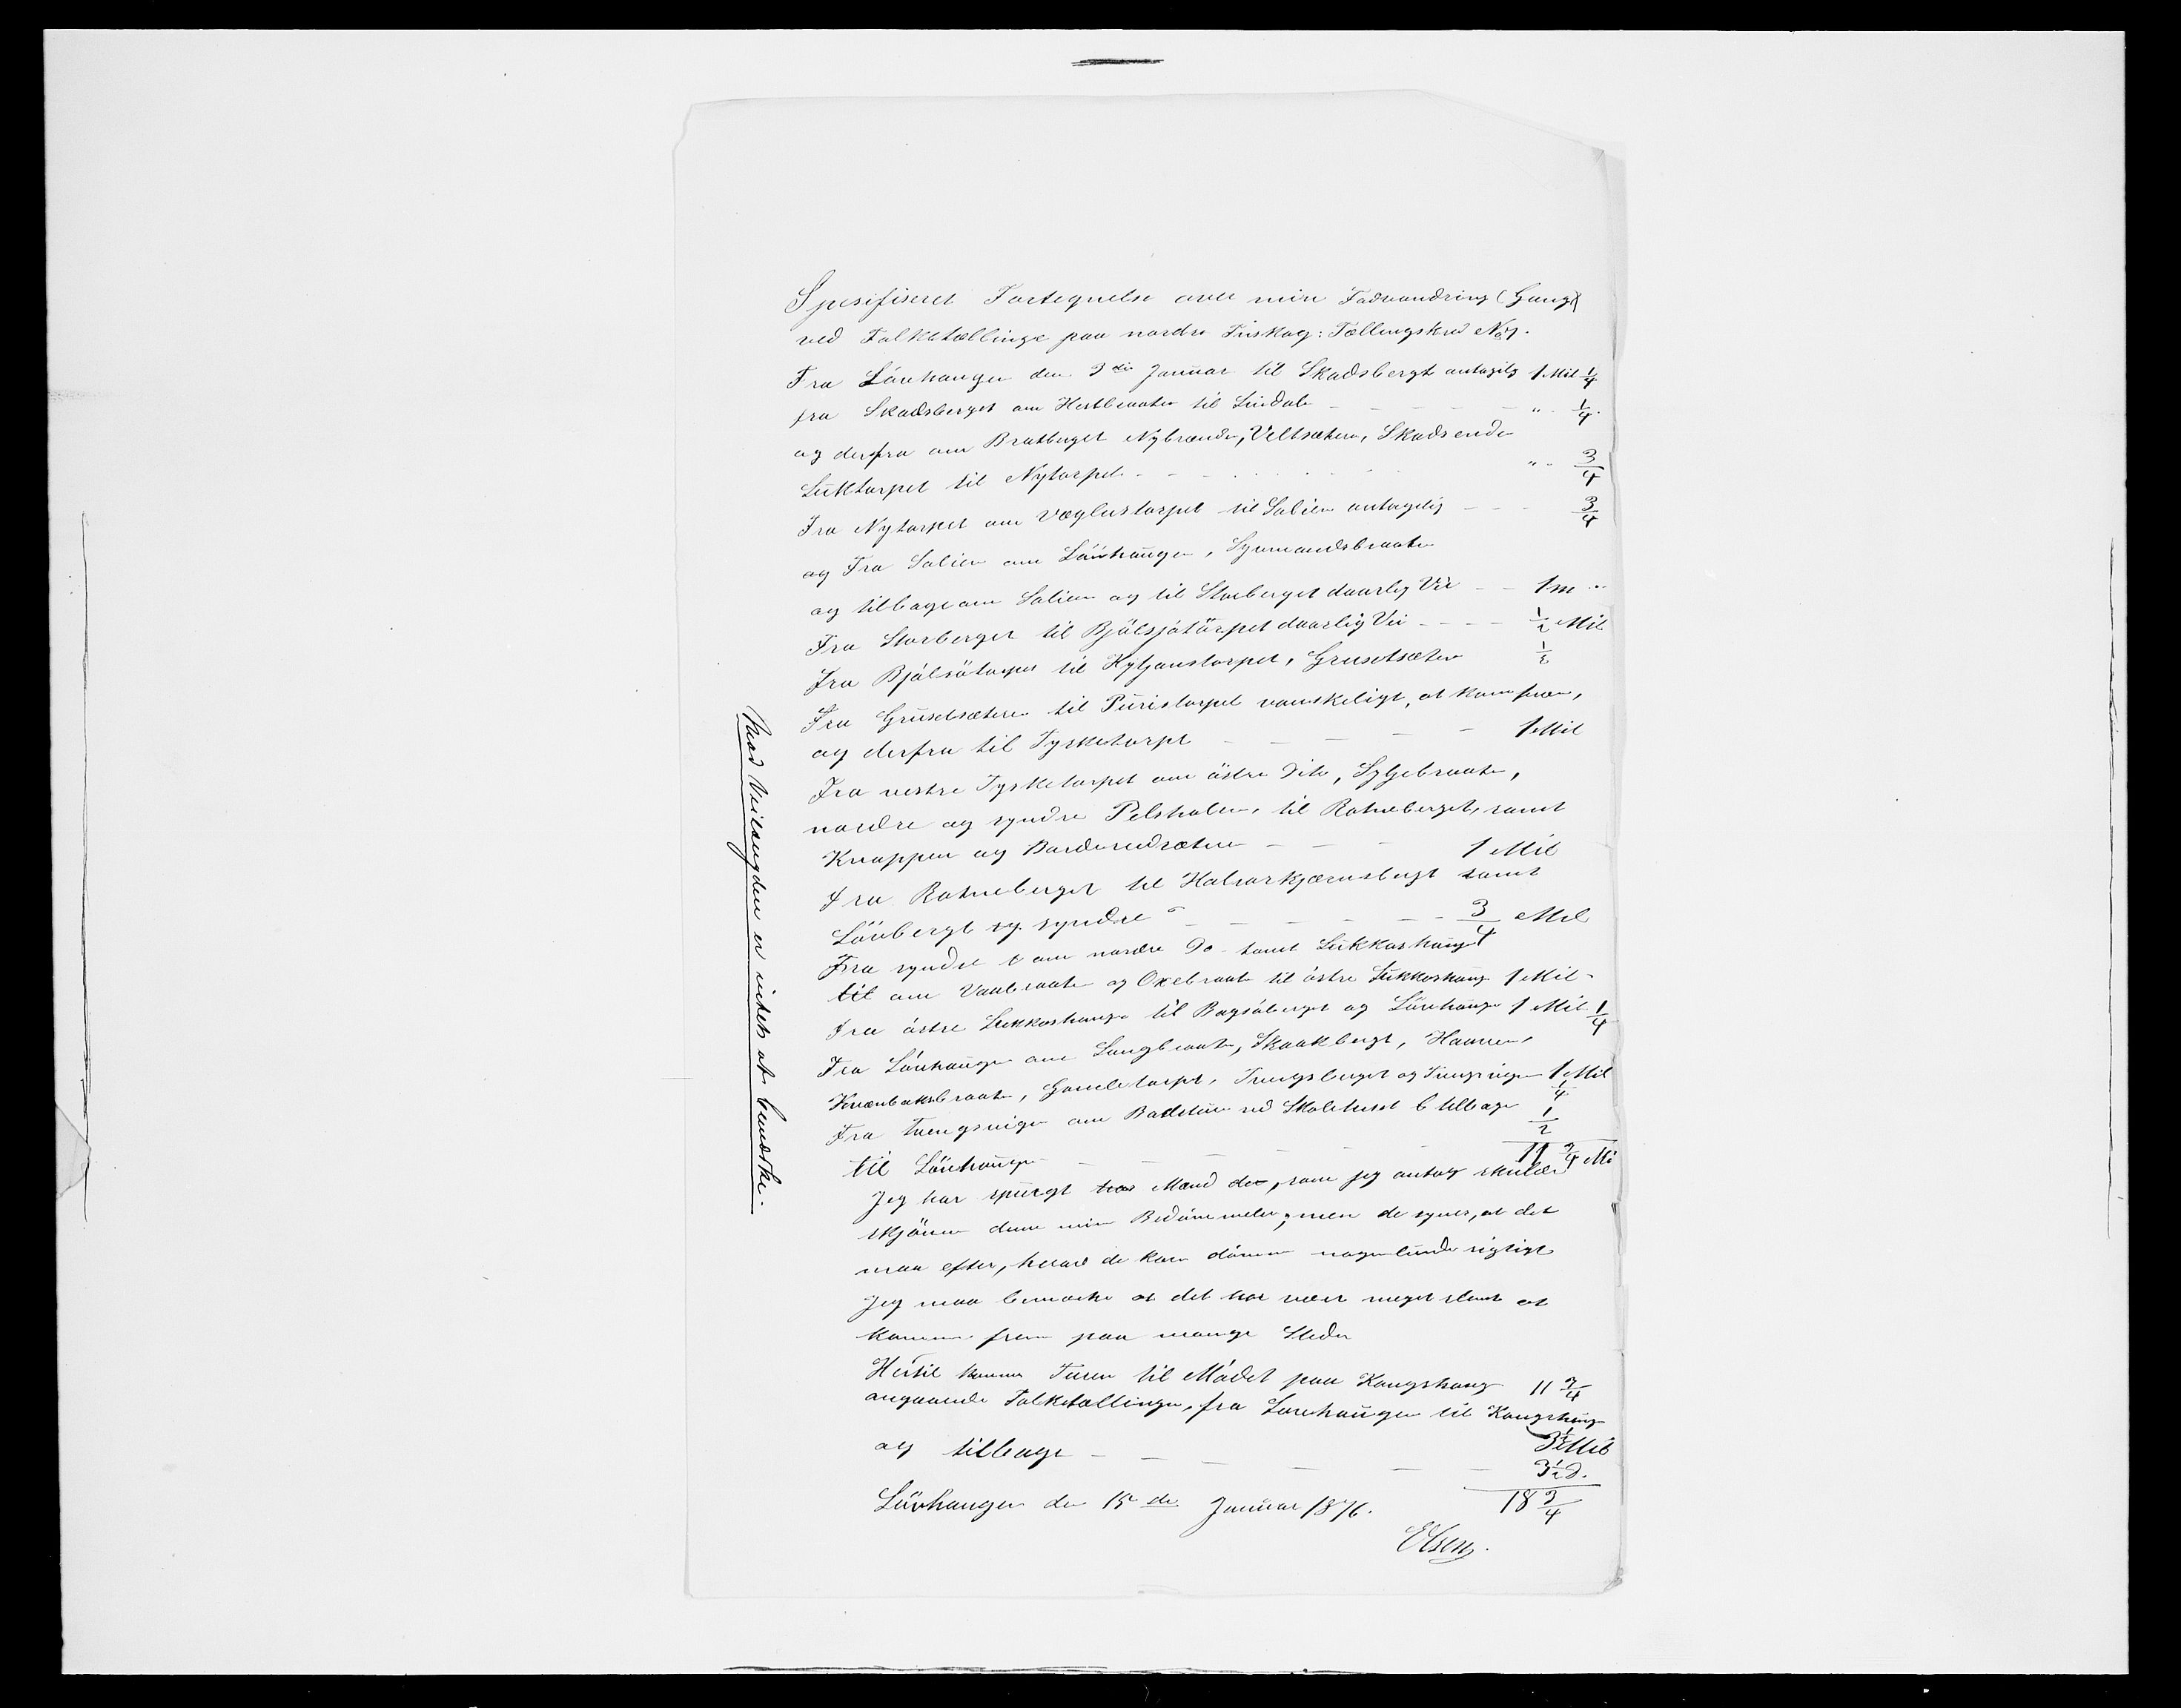 Spesifiseret Fortegnelse over min Fodvandring (Gang)
ved Folketællinge paa nordre Finskog: Tællingskred No 7.
Fra Lövhaugen den 3die Januar til Skadsberget antagelig 1 Mil 1/4
fra Skadsberget om Hestbraaten til Lindale - - - - - " 1/4.
og derfra om Bratberget Nybrænde, Veltsæteren, Skadsenden
Lüktorpet til Nytorpet - - - - " 3/4
Fra Nytorpet om Væglestorpet til Salien antagelig - - - 3/4
og Fra Salien om Lövhaugen, Symandsbraaten
og tilbage om Salien og til Storberget daarlig Vei - - 1 m "
Fra Storberget til Bjölsjötorpet daarlig Vei - - - - 1/2 Mil
Fra Bjölsötorpet til Hytjanstorpet, Grusetsæter 1/2
Fra Grüsetsæteren til Püristorpet vanskeligt, at kom frem,
og derfra til Tysketorpet - - - - - 1 Mil
Fra vestre Tysketorpet om östre Dito, Sygebraaten,
nordre og syndre Pelsholen, til Ratneberget, samt
Knappen og - - - 1 Mil
Fra Ratneberget til samt
Lövberget og syndre - - - - - 3/4 Mil
Fra syndre om nordre Do samt Lükkashaugt
til om Vaabraaten og Oxebraaten til östre Lükkashaug 1 Mil -
Fra östre Lükkashauge til Bogsöberget og Lövhauge 1 Mil 1/4
Fra Lövhaugen om Langbraaten, Skaakberget, Haaren,
Kvænbaksbraaten, Gamletorpet, og 1 Mil 1/4
Fra om ved Skolehuset tilbage 1/2
til Lövhaugen - - - - - 11 3/4 Mi
Jeg har spürgt Mænd der, som jeg antog skulde
skjönne denne min Bedömmelse, men de synes, at det
maa efter, hvad de kan dömme nogenlunde rigtigt
Jeg maa bemærke at det har været meget slemt at
komme frem paa mange Steder
Hertil kommer Turen til Mödet paa Kongshaug 11 3/4
angaaende Folketællingen, fra Lövhaugen til Kongshaug
3 1/2 Mil
og tilbage - - - - - - 3 1/2 d.
Lövhaugen den 15de Januar 1876. 18 3/4
Olsen.
Hvad Veilængden er vides at bemærke.